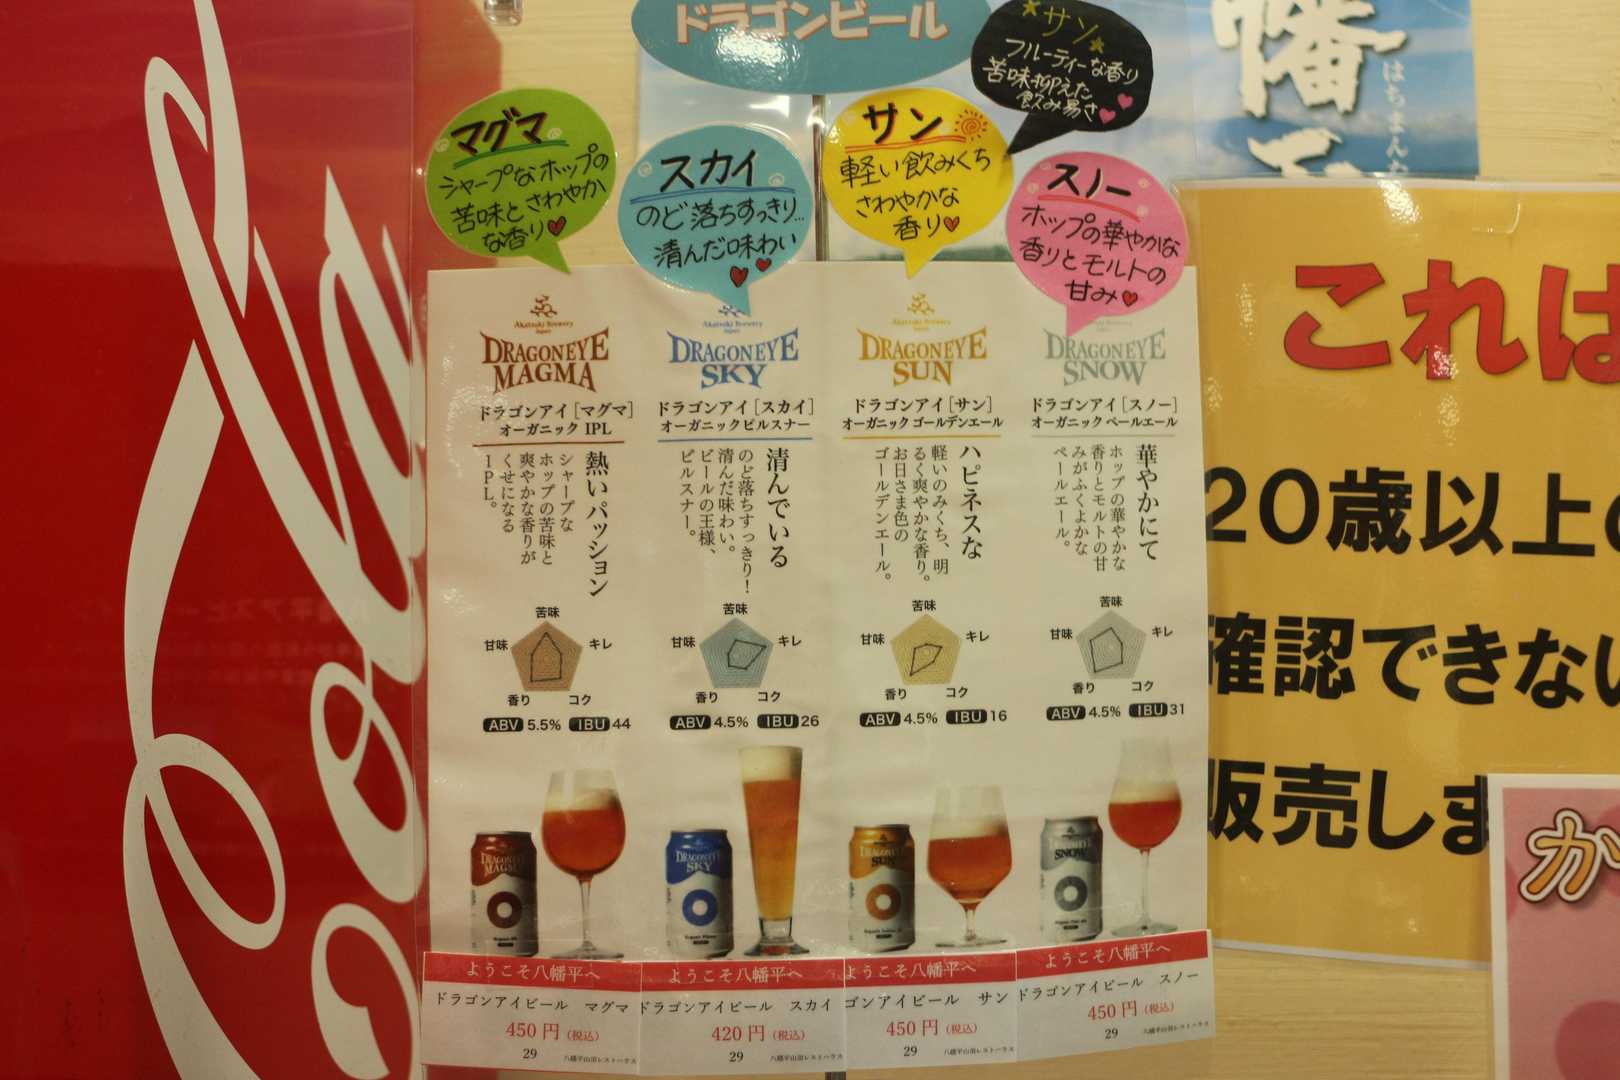 ドラゴンビール
★サン★
フルーティーな香り
苦味抑えた
飲み易さ
マグマ
シャープなホップの
苦味とさわやか
な香り
スカイ
のど落ちすっきり…
清んだ味わい
サン
軽い飲みくち
さわやかな
香り
スノー
ホップの華やかな
香りとモルトの
甘み
幡
はちまんた
Akatsuki Brewery
Japan
DRAGONEYE
MAGMA
ドラゴンアイ［マグマ］
オーガニック IPL
熱いパッション
シャープな
ホップの苦味と
爽やかな香りが
くせになる
IPL。
苦味
キレ
コク
香り
甘味
ABV 5.5% IBU 44
Akatsuki Brewery
Japan
DRAGONEYE
SKY
ドラゴンアイ［スカイ］
オーガニックピルスナー
清んでいる
のど落ちすっきり！
清んだ味わい。
ビールの王様、
ピルスナー。
苦味
キレ
コク
香り
甘味
ABV 4.5% IBU 26
Akatsuki Brewery
Japan
DRAGONEYE
SUN
ドラゴンアイ［サン］
オーガニックゴールデンエール
ハピネスな
軽いのみくち、明
るく爽やかな香り。
お日さま色の
ゴールデンエール。
苦味
キレ
コク
香り
甘味
ABV 4.5% IBU 16
DRAGONEYE
SNOW
ドラゴンアイ［スノー］
オーガニックペールエール
華やかにて
ホップの華やかな
香りとモルトの甘
みがふくよかな
ペールエール。
苦味
キレ
コク
香り
甘味
ABV 4.5% IBU 31
DRAGONEYE
MAGMA
DRAGONEYE
SKY
DRAGONEYE
SUN
DRAGONEYE
SNOW
ようこそ八幡平へ
ドラゴンアイビール マグマ
450円（税込）
29
八幡平山頂レストハウス
ようこそ八幡平へ
ドラゴンアイビール スカイ
420円（税込）
29
八幡平山頂レストハウス
ようこそ八幡平へ
ゴンアイビール サン
450円（税込）
29
八幡平山頂レストハウス
ようこそ八幡平へ
ドラゴンアイビール スノー
450円（税込）
29
八幡平山頂レストハウス
これは
20歳以上の
確認できない
販売しま
か